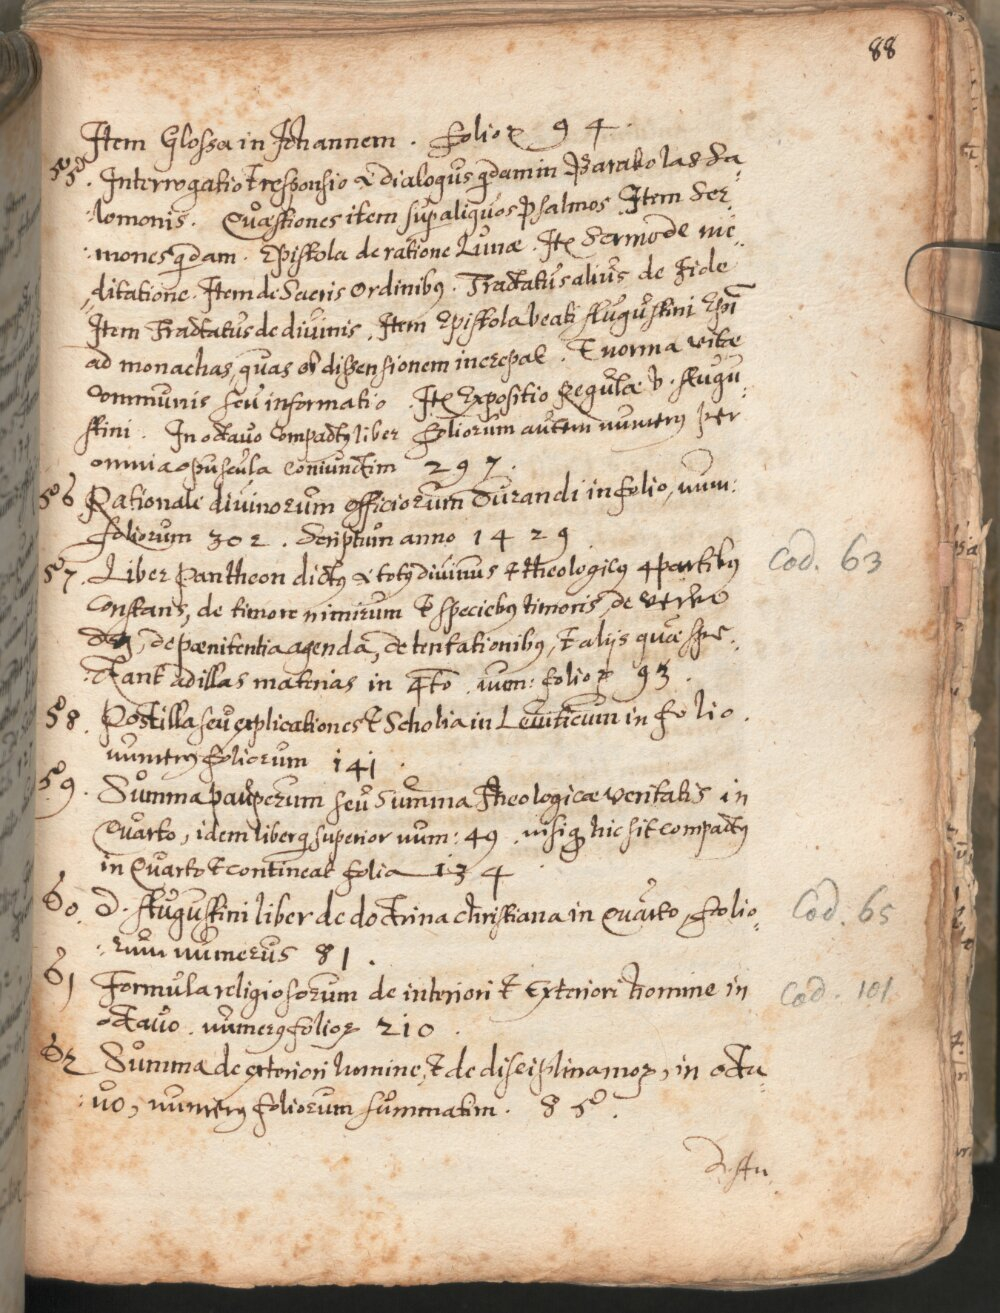 88
Item Glossa in Johannem . folioꝝ 94 .
55. Interrogatio et responsio & dialogus qdam in Parabolas Sa-
lomonis. Quæstiones item super aliquos Psalmos Item Ser-
mones qdam. Epistola de ratione Lunæ. Itẽ Sermo de me-
ditatione. Item de Sacris Ordinibus. Tractatus alius de Fide
Item Tractatus de divinis. Item Epistola beati Augustini Epi
ad monachas, quas ob dissensionem increpat. Et norma vitæ
communis seu informatio. Itẽ Expositio Regulæ b. Augu-
stini. In octavo compactus liber foliorum autem numerus per
omnia opuscula coniunctim 297.
56 Rationale divinorum officiorum Durandi in folio, num:
foliorum 302. Scriptum anno 1429
57. Liber Pantheon dictus & totus divinus et theologicus 4 partibus
Cod. 63
constans, de timore nimirum et speciebus timoris, de verbo
Dei, de pænitentia agenda, de tentationibus, et aliis quæ spe-
ctant ad illas materias in 4to. num: folioꝝ 93.
58. Postilla seu explicationes et Scholia in Leviticum in folio.
numerus foliorum 141.
59. Summa pauperum seu Summa theologicæ veritatis in
Quarto, idem liber q superior num: 49. nisi q hic sit compactus
in Quarto et contineat folia 134
60. D. Augustini liber de doctrina christiana in Quarto, folio-
Cod. 65
rum numerus 81.
61 Formula religiosorum de interiori et Exteriori homine in
Cod. 101
octavo. numerus folioꝝ 210.
62 Summa de exteriori homine, et de disciplina moꝝ, in octa-
vo, numerus foliorum summatim. 85.
D. Au